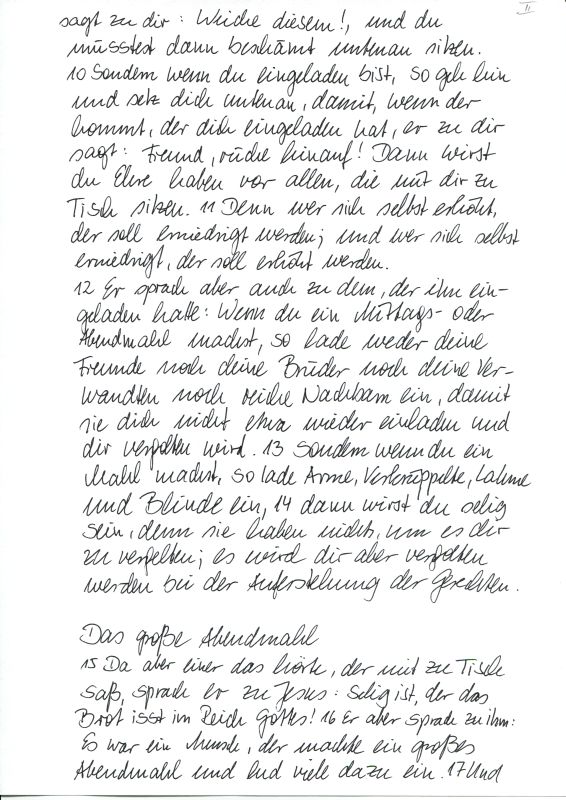 11
sagt zu dir: Weiche diesem!, und du
müsstest dann beshämt untenan sitzen.
10 Sondern wenn du eingeladen bist, so geh hin
und setz dich untenan, damit, wenn der
kommt, der dich eingeladen hat, er zu dir
sagt: Freund, rücke hinauf! Dann wirst
du Ehre haben vor allen, die mit dir zu
Tisch sitzen. 11 Denn wer sich selbst erhöht,
der soll erniedrigt werden; und wer sich selbst
erniedrigt, der soll erhöht werden.
12 Er sprach aber auch zu dem, der ihn ein-
geladen hatte: Wenn du ein Mittags- oder
Abendmahl machst, so lade weder deine
Freunde noch deine Brüder noch deine Ver-
wandten noch reiche Nachbarn ein, damit
sie dich nicht etwa wieder einladen und
dir vergolten wird. 13 Sondern wenn du ein
Mahl machst, so lade Arme, Verkrüppelte, Lahme
und Blinde ein, 14 dann wirst du selig
sein, denn sie haben nichts, um es dir
zu vergelten; es wird dir aber vergolten
werden bei der Auferstehung der Gerechten.
Das große Abendmahl
15 Da aber einer das hörte, der mit zu Tisch
saß, sprach er zu Jesus: Selig ist, der das
Brot isst im Reich Gottes! 16 Er aber sprach zu ihm:
Es war ein Mensch, der machte ein großes
Abendmahl und lud viele dazu ein. 17 Und